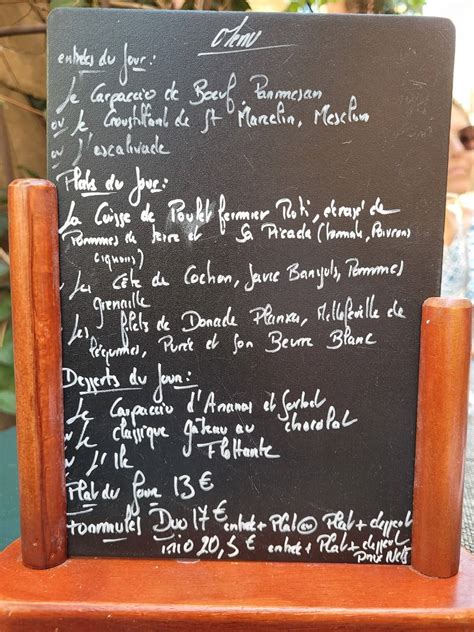 Menu
entrées du Jour :
Le Carpaccio de Boeuf, Parmesan
ou Le Croustillant de St Marcelin, Mesclun
ou L'escalivade
Plats du Jour :
La Cuisse de Poulet fermier Roti, écrasé de
Pommes de terre et Sa Picada (tomate, Poivrons
oignons)
La Côte de Cochon, Sauce Banyuls, Pommes
grenaille
Les filets de Dorade Planxa, Millefeuille de
Légumes, Purée et Son Beurre Blanc
Desserts du Jour :
Le Carpaccio d'Ananas et Sorbet
Le classique gateau au chocolat
L'Ile Flottante
Plat du Jour 13 €
formules Duo 17 € entrée + Plat ou Plat + dessert
trio 20,5 € entrée + Plat + dessert
Prix Nets